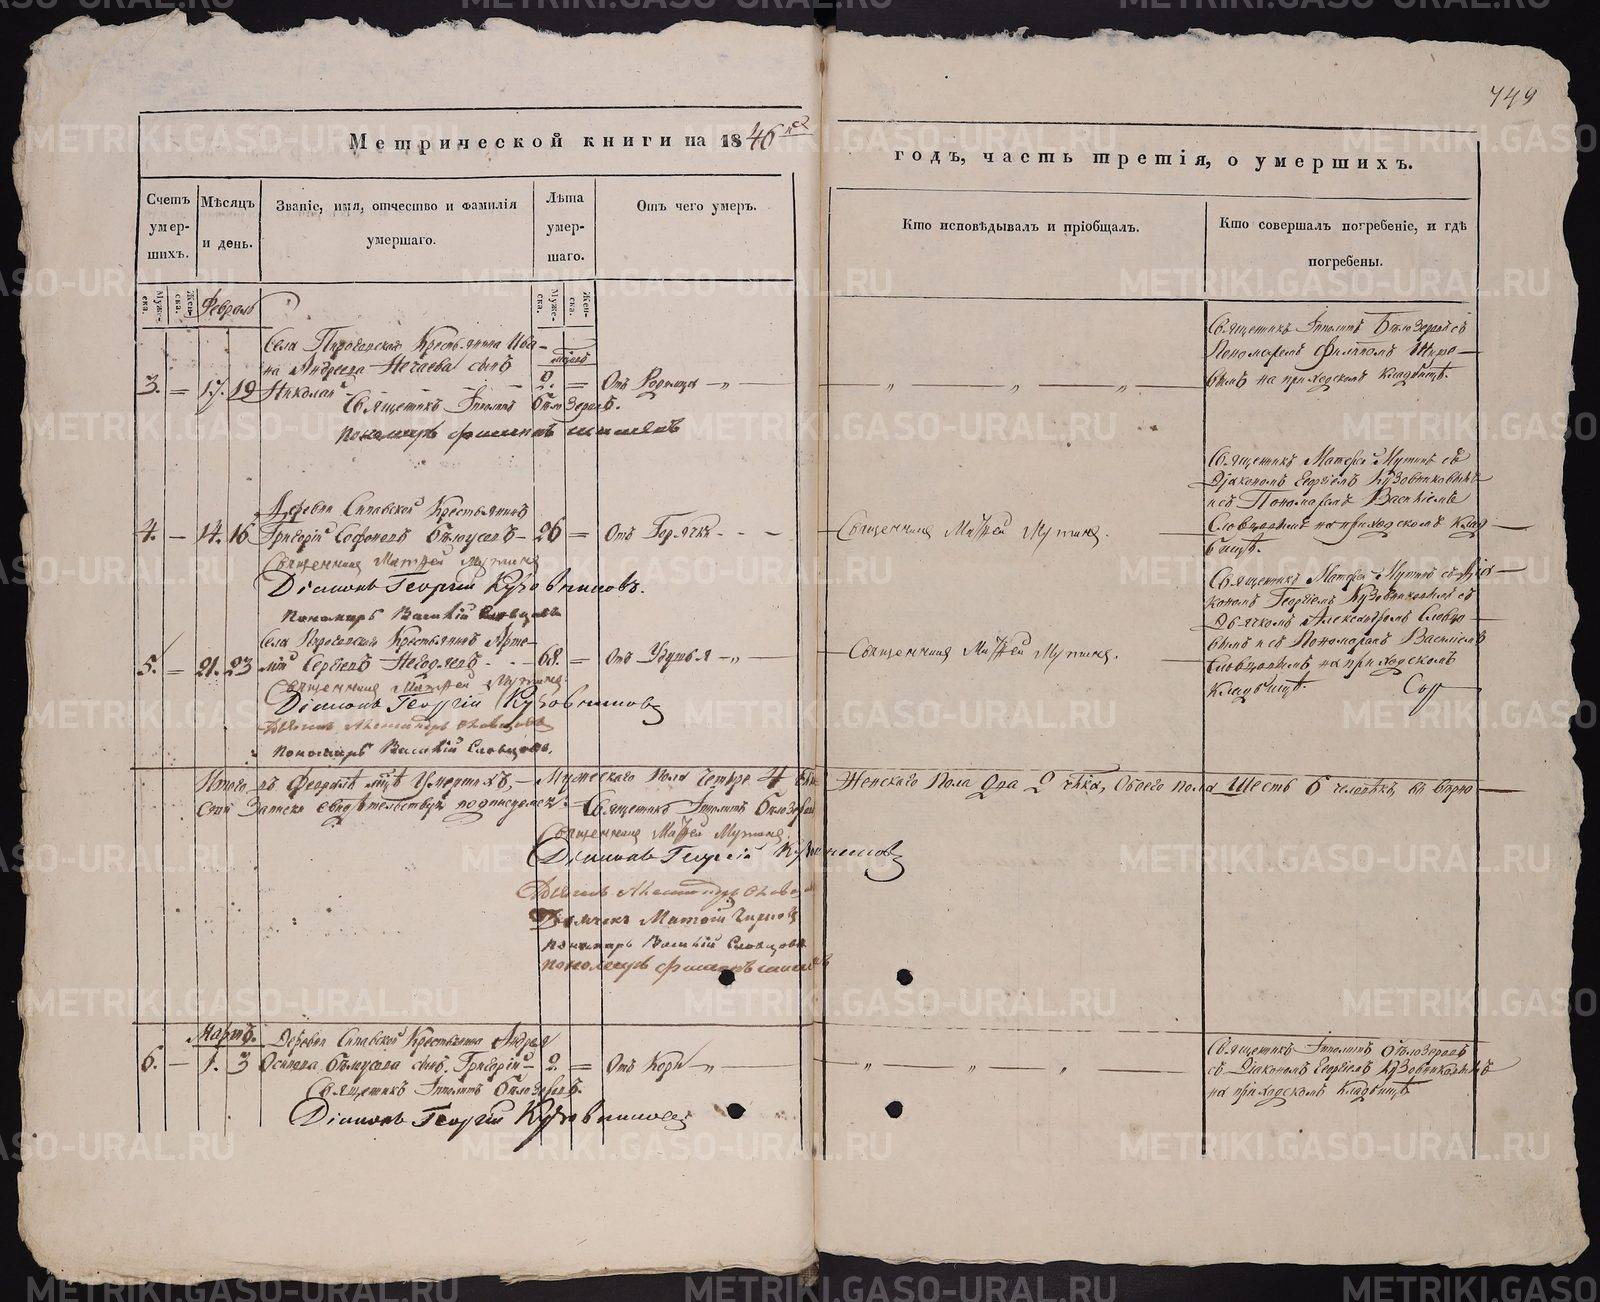 449
Метрической книги на 1846й
годъ, часть третія, о умершихъ.
Счетъ умер-шихъ.
Мѣсяцъ и день.
Званіе, имя, отчество и фамилія умершаго.
Лѣта умер-шаго.
Отъ чего умеръ.
Кто исповѣдывалъ и пріобщалъ.
Кто совершалъ погребеніе, и гдѣ погребены.
Муже-ска.
Жен-ска.
Муже-ска.
Жен-ска.
Февраль
Села Крестьянина Ива-
на Андреева Нечаева сынъ
3. = 17. 19 Николай 2. = Отъ Родимца
Священникъ Ипполитъ Бѣлозеровъ.
Пономарь Филиппъ
Священникъ Ипполитъ Бѣлозеровъ съ
Пономаремъ Филиппомъ
на приходскомъ кладбищѣ.
Деревни Крестьянинъ
4. - 14. 16 Григорій 26 = Отъ Горячки
Священникъ Матѳей Мутинъ
Діаконъ Георгій Кузовниковъ.
Пономарь Василій Словцовъ
Священника Матѳей Мутинъ.
Священникъ Матѳей Мутинъ съ
Діакономъ Георгіемъ Кузовниковымъ
и съ Пономаремъ Василіемъ
Словцовымъ на приходскомъ клад-
бищѣ.
Села Крестьянинъ Арте-
5. = 21. 23 мій Сергѣевъ 68. = Отъ Удушья
Священникъ Матѳей Мутинъ.
Діаконъ Георгій Кузовниковъ
Дьячекъ Александръ Словцовъ
Пономарь Василій Словцовъ.
Священника Матѳей Мутинъ.
Священникъ Матѳей Мутинъ съ Діа-
кономъ Георгіемъ Кузовниковымъ съ
Дьячкомъ Александромъ Словцо-
вымъ и съ Пономаремъ Василіемъ
Словцовымъ на приходскомъ
кладбищѣ.
Итого въ Февралѣ м-цѣ Умершихъ, Мужескаго Пола Четыре 4
Женскаго Пола Два 2 Обоего пола Шесть 6 человѣкъ, въ вѣрно-
сти записки свидѣтельствуя подписуемся:
Священникъ Ипполитъ Бѣлозеровъ
Священникъ Матѳей Мутинъ
Діаконъ Георгій Кузовниковъ
Дьячекъ Александръ Словцовъ
Дьячекъ
Пономарь Василій Словцовъ
Пономарь Филиппъ
Мартъ.
Деревни Крестьянина Андрея
6. - 1. 3 Осипова сынъ Григорій 2. = Отъ Кори
Священникъ Ипполитъ Бѣлозеровъ.
Діаконъ Георгій Кузовниковъ
Священникъ Ипполитъ Бѣлозеровъ
съ Діакономъ Георгіемъ Кузовниковымъ
на приходскомъ кладбищѣ
METRIKI.GASO-URAL.RU